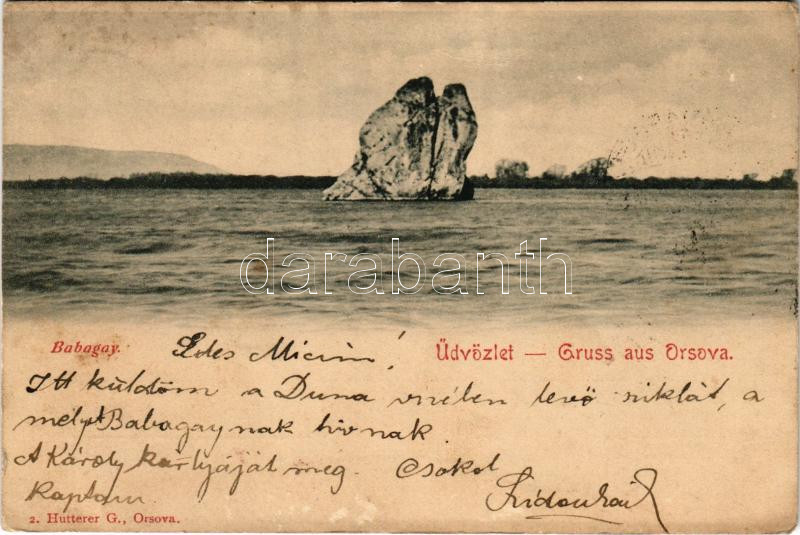 darabanth
Babagay.
Üdvözlet — Gruss aus Orsova.
Édes Miczim!
Itt küldöm a Duna vizében levő sziklát, a
melyt Babagaynak hivnak.
A Károly kártyáját meg
kaptam.
Csokol
2. Hutterer G., Orsova.